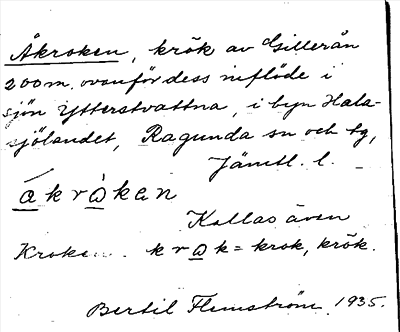 Åkroken, krök av Gillerån
200 m. ovanför dess inflöde i
sjön Ytterstvattna, i byn Hala-
sjölandet, Ragunda sn och tg,
Jämtl. l.
åkråkan
Kallas även
Kroken. kråk = krok, krök.
Bertil Flemström 1935.